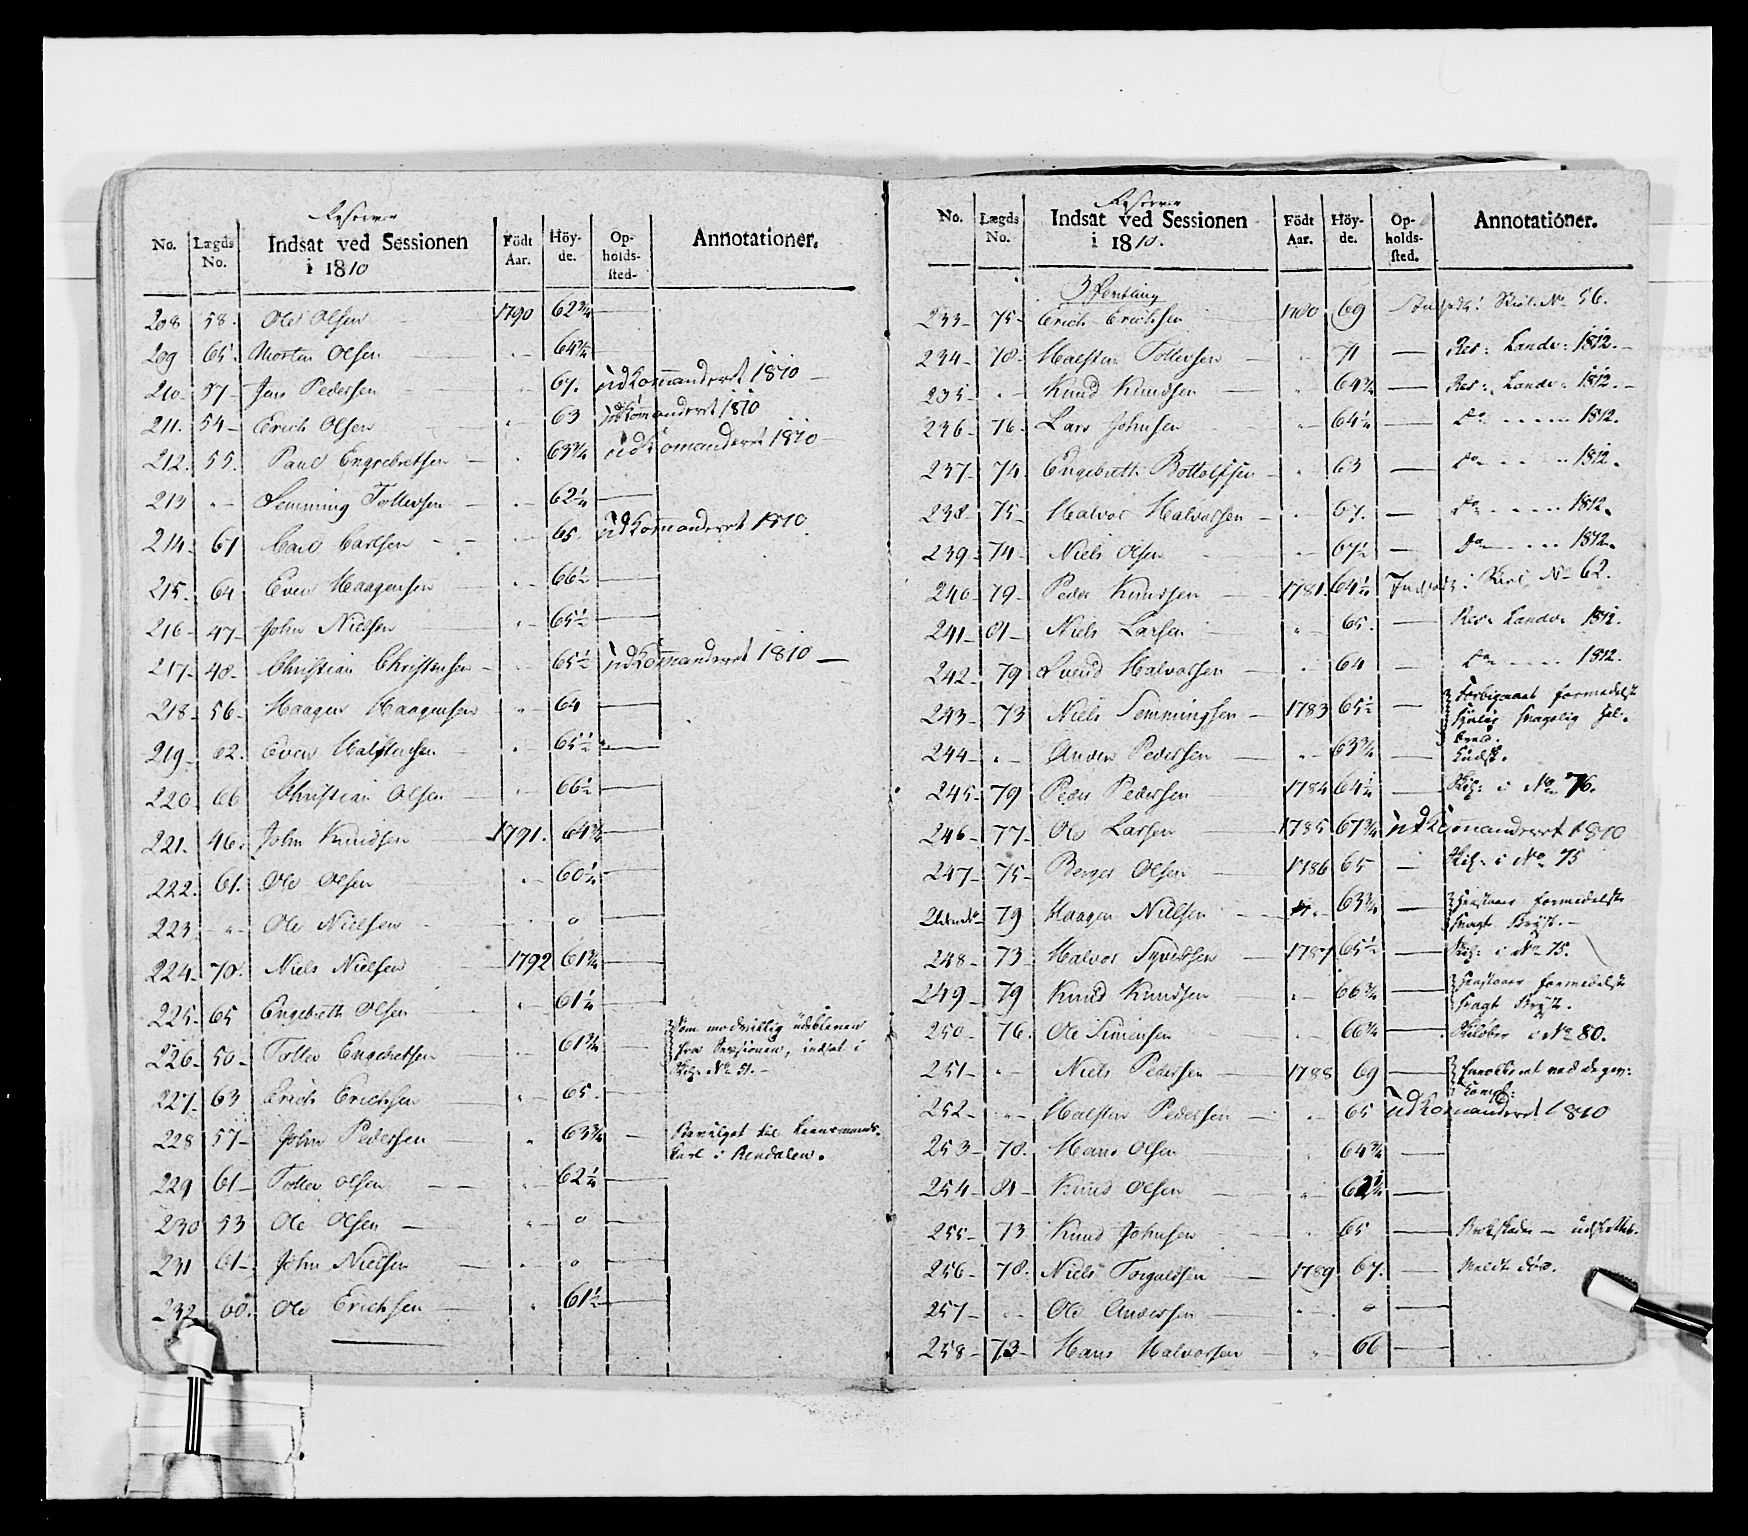 No. Lægds No. Indsat ved Sessionen i 1810 Födt Aar. Höyde. Opholdssted. Annotationer.
208 58. Ole Olsen 1790 62¾
209 65. Morten Olsen 64¾
210 57 Jens Pedersen 67. udkommanderet 1810
211. 54 Erich Olsen 63 udkommanderet 1810
212. 55. Paul Engebretsen 63¾ udkommanderet 1810
213 Semming Tollevsen 62¼
214 61 Carl Carlsen 65. udkommanderet 1810
215. 64 Even Haagensen 66½
216 47 John Nielsen 65½
217 48 Christian Christensen 65½ udkommanderet 1810
218 56 Haagen Haagensen 64
219 62. Even Halstensen 65½
220 66 Christian Olsen 66½
221. 46. John Knudsen 1791. 64¾
222. 61. Ole Olsen 60¼
223 Ole Nielsen 0
224 70. Niels Nielsen 1792 61¾
225 65 Engebreth Olsen 61¼
226 50 Tollev Engebretsen 61¾ Som modvillig udebleven fra Sessionen, indsat i No 51.
227 63 Erich Erichsen 65.
228 57 John Pedersen 63¾ Bevilget til Leensmands-karl i Rendalen.
229 61 Tollev Olsen 62¼
230 53 Ole Olsen 0
231 61 John Nielsen 0
232 60. Ole Erichsen 61½
No. Lægds No. Indsat ved Sessionen i 1810. Födt Aar. Höyde. Opholdssted. Annotationer.
233 75 Erich Erichsen 1780 69 No 56.
234 78 Halsten Tollevsen 71 Res: Landv: 1812.
235 Knud Knudsen 64¾ Res: Landv: 1812.
236 76 Lars Johnsen 64¼ do 1812.
237 74 Engebreth Bottolfsen 63 do 1812.
238 75 Halvor Halvorsen 67. do 1812.
239 74 Niels Olsen 67½ do 1812.
240 79 Peder Knudsen 1781. 64¼ No 62.
241 81 Niels Larsen 65. Res: Landv: 1812.
242 79 Svend Halvorsen 64 do 1812.
243 73 Niels Semmingsen 1783 65½ Forbigaaet formedelst svagelig Hel-bred.
244 Anders Pedersen 63¾
245 79 Peder Pedersen 1784 64¼ i No 76.
246 77 Ole Larsen 1785 67¾ udkommanderet 1810
247 75 Berger Olsen 1786 65 i No 75
79 Haagen Nielsen 63¾ formedelst svagt Bryst.
248 73 Halvor Syversen 1787 65½ i No 75.
249 79 Knud Knudsen 66¾ formedelst svagt Bryst.
250 76. Ole Simensen 66¼ i No 80.
251 Niels Pedersen 1788 69
252 Halsten Pedersen 65 udkommanderet 1810
253 78. Hans Olsen 64¾
254 81 Knud Olsen
255 73 Knud Johnsen 65 Brokskade udskattet.
256 78. Niels Torgalsen 1789 67.
257 Ole Andersen 0
258 73 Hans Halvorsen 66